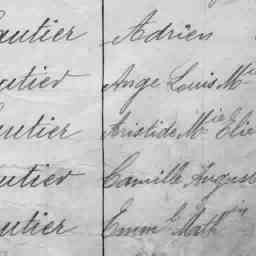 autier Adrien
autier Ange Louis Mie
autier Aristide Mie Elie
autier Camille August
autier Emm l Math in